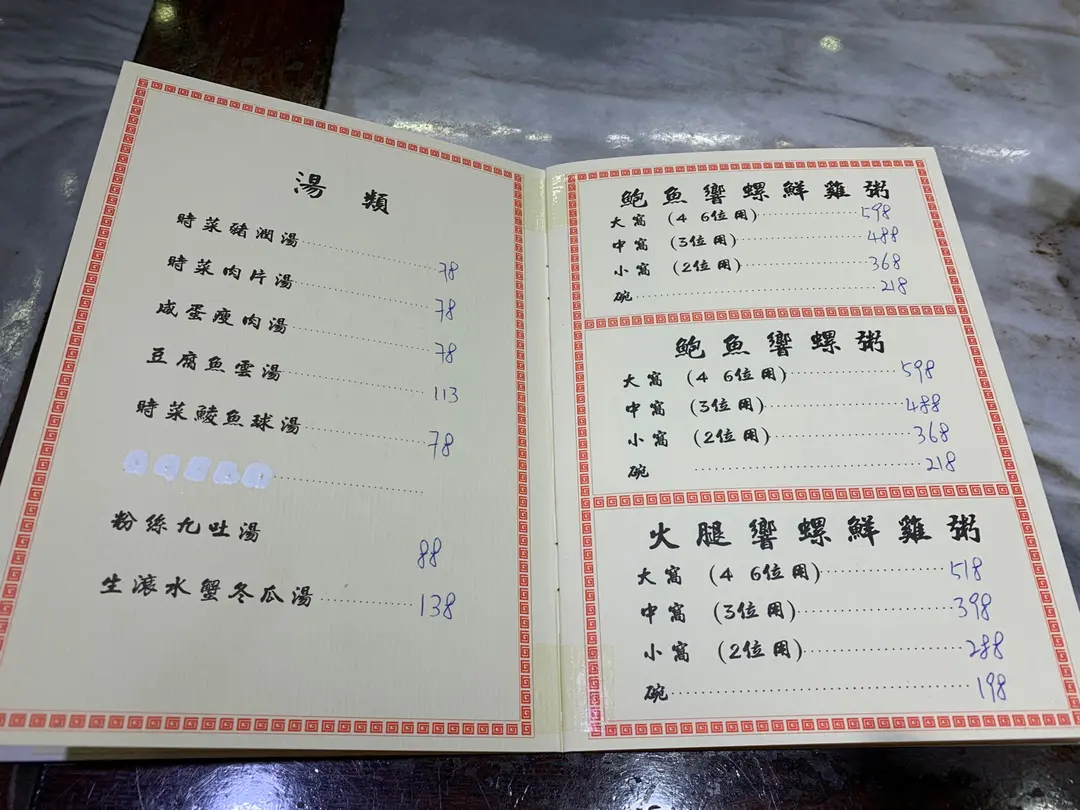 湯類
時菜豬潤湯 78
時菜肉片湯 78
咸蛋瘦肉湯 78
豆腐魚雲湯 113
時菜鯪魚球湯 78
粉絲九吐湯 88
生滾水蟹冬瓜湯 138
鮑魚響螺鮮雞粥
大窩 (4 6位用) 598
中窩 (3位用) 488
小窩 (2位用) 368
碗 218
鮑魚響螺粥
大窩 (4 6位用) 598
中窩 (3位用) 488
小窩 (2位用) 368
碗 218
火腿響螺鮮雞粥
大窩 (4 6位用) 518
中窩 (3位用) 398
小窩 (2位用) 288
碗 198